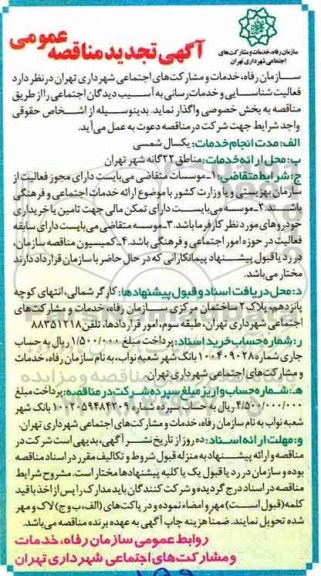 سازمان رفاه، خدمات و مشارکت‌های
اجتماعی شهرداری تهران
آگهی تجدید مناقصه عمومی
سازمان رفاه، خدمات و مشارکت‌های اجتماعی شهرداری تهران در نظر دارد
فعالیت شناسایی و خدمات رسانی به آسیب دیدگان اجتماعی را از طریق
مناقصه به بخش خصوصی واگذار نماید. بدینوسیله از اشخاص حقوقی
واجد شرایط جهت شرکت در مناقصه دعوت به عمل می‌آید.
الف: مدت انجام خدمات: یکسال شمسی
ب: محل ارائه خدمات: مناطق ۲۲گانه شهر تهران
ج: شرایط متقاضی: ۱-موسسات متقاضی می‌بایست دارای مجوز فعالیت از
سازمان بهزیستی و یا وزارت کشور با موضوع ارائه خدمات اجتماعی و فرهنگی
باشند. ۲-موسسه می‌بایست دارای تمکن مالی جهت تامین یا خریداری
خودروهای مورد نظر کارفرما باشد. ۳-موسسه متقاضی می‌بایست دارای سابقه
فعالیت در حوزه امور اجتماعی و فرهنگی باشد. ۴-کمیسیون مناقصه سازمان،
در رد یا قبول پیشنهاد پیمانکارانی که در حال حاضر با سازمان قرارداد دارند
مختار می‌باشد.
د: محل دریافت اسناد و قبول پیشنهادها: کارگر شمالی، انتهای کوچه
پانزدهم، پلاک ۲ ساختمان مرکزی سازمان رفاه، خدمات و مشارکت‌های
اجتماعی شهرداری تهران، طبقه سوم، امور قراردادها، تلفن ۸۸۳۵۱۲۱۸
ر: شماره حساب خرید اسناد: پرداخت مبلغ ۱/۵۰۰/۰۰۰ ریال به حساب
جاری شماره ۱۰۰۴۰۹۰۲۸ بانک شهر شعبه نواب، به نام سازمان رفاه، خدمات
و مشارکت‌های اجتماعی شهرداری تهران.
هـ: شماره حساب واریز مبلغ سپرده شرکت در مناقصه: پرداخت مبلغ
ریال به حساب سپرده شماره بانک شهر
شعبه نواب به نام سازمان رفاه، خدمات و مشارکت‌های اجتماعی شهرداری تهران.
و: مهلت ارائه اسناد: ده روز از تاریخ نشر آگهی، بدیهی است شرکت در
مناقصه و ارائه پیشنهاد به منزله قبول شروط و تکالیف مقرر در اسناد مناقصه
بوده و سازمان در رد یا قبول یک یا کلیه پیشنهادها مختار است. مشروح شرایط
مناقصه در اسناد درج گردیده و شرکت کنندگان باید مدارک را پس از اخذ با قید
کلمه (قبول است) مهر و امضاء نموده و در پاکت‌های (الف، ب و ج) لاک و مهر
شده تحویل نمایند. ضمنا هزینه چاپ آگهی به عهده برنده مناقصه می‌باشد.
روابط عمومی سازمان رفاه، خدمات
و مشارکت‌های اجتماعی شهرداری تهران